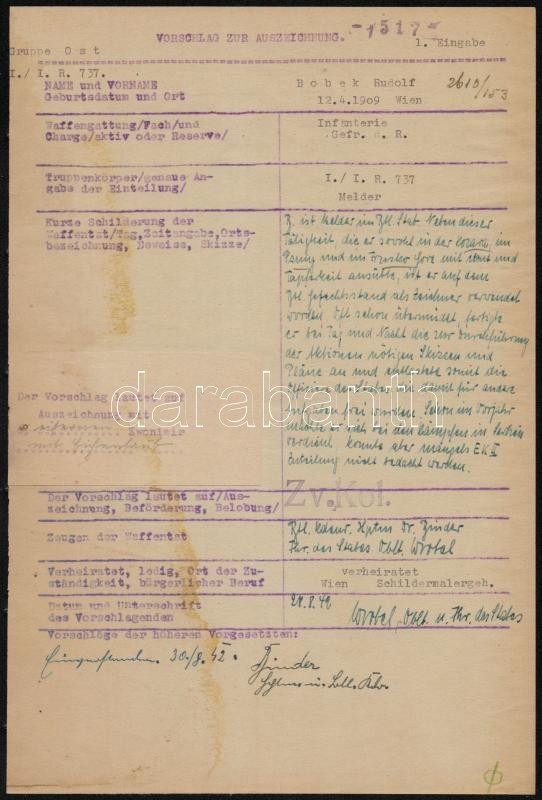 VORSCHLAG ZUR AUSZEICHNUNG. -1517-
Gruppe Ost 1. Eingabe
I./ I. R. 737.
NAME und VORNAME Bobek Rudolf
Geburtsdatum und Ort 12.4.1909 Wien
2610/153
Waffengattung/Fach/und Infanterie
Charge/aktiv oder Reserve/ Gefr. d. R.
Truppenkörper/genaue An- I./ I. R. 737
gabe der Einteilung/ Melder
Kurze Schilderung der
Waffentat/Tag,Zeitangabe,Orts-
bezeichnung, Beweise, Skizze/
B. ist Melder im Btl. Stab. Neben dieser
Tätigkeit, die er sowohl in der Kozara, im
und
Tapferkeit ausübte, ist er auf dem
Btl. Gefechtsstand als Zeichner verwendet
worden. Oft schon übermüdet, fertigte
er bei Tag und Nacht die zur Durchführung
der Aktionen nötigen Skizzen und
Pläne an und entlastete somit die
Offiziere des Stabes die damit für andere
Aufgaben frei wurden. Schon im Vorjahr
machte er sich bei den Kämpfen in Serbien
verdient, konnte aber mangels EK II
Erteilung nicht bedacht werden.
Der Vorschlag lautet auf
Auszeichnung mit
eisernen Zwonimir
mit Eichenlaub
darabanth
Der Vorschlag lautet auf/Aus- Zv.Kol.
zeichnung, Beförderung, Belobung/
Zeugen der Waffentat
Btl. Kdeur. Hptm Dr. Zinder
Fhr. des Stabes. Oblt. Wrotal
Verheiratet, ledig, Ort der Zu- verheiratet
ständigkeit, bürgerlicher Beruf Wien Schildermalergeh.
Datum und Unterschrift
des Vorschlagenden
Wrotal, Oblt. u. Fhr. des Stabes
Vorschläge der höheren Vorgesetzten:
Einverstanden. 30./8. 42. Zinder